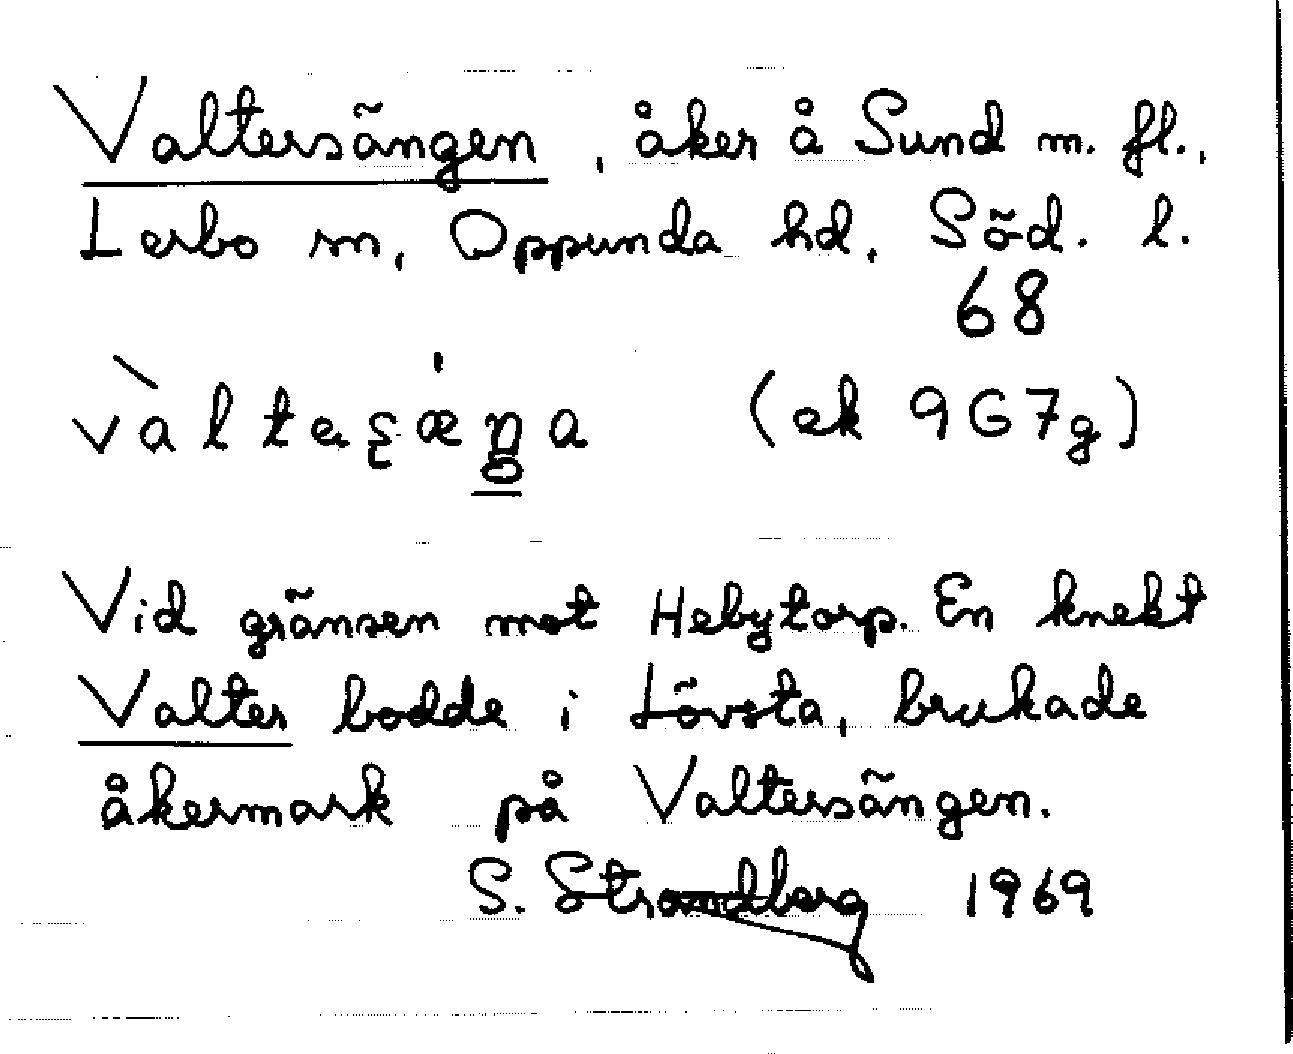 Valtersängen, åker å Sund m. fl.,
Lerbo sn, Oppunda hd, Söd. l.
68
(ek 9G7g)
Vid gränsen mot Hebytorp. En knekt
Valter bodde i Lövsta, brukade
åkermark på Valtersängen.
S. Strandberg 1969